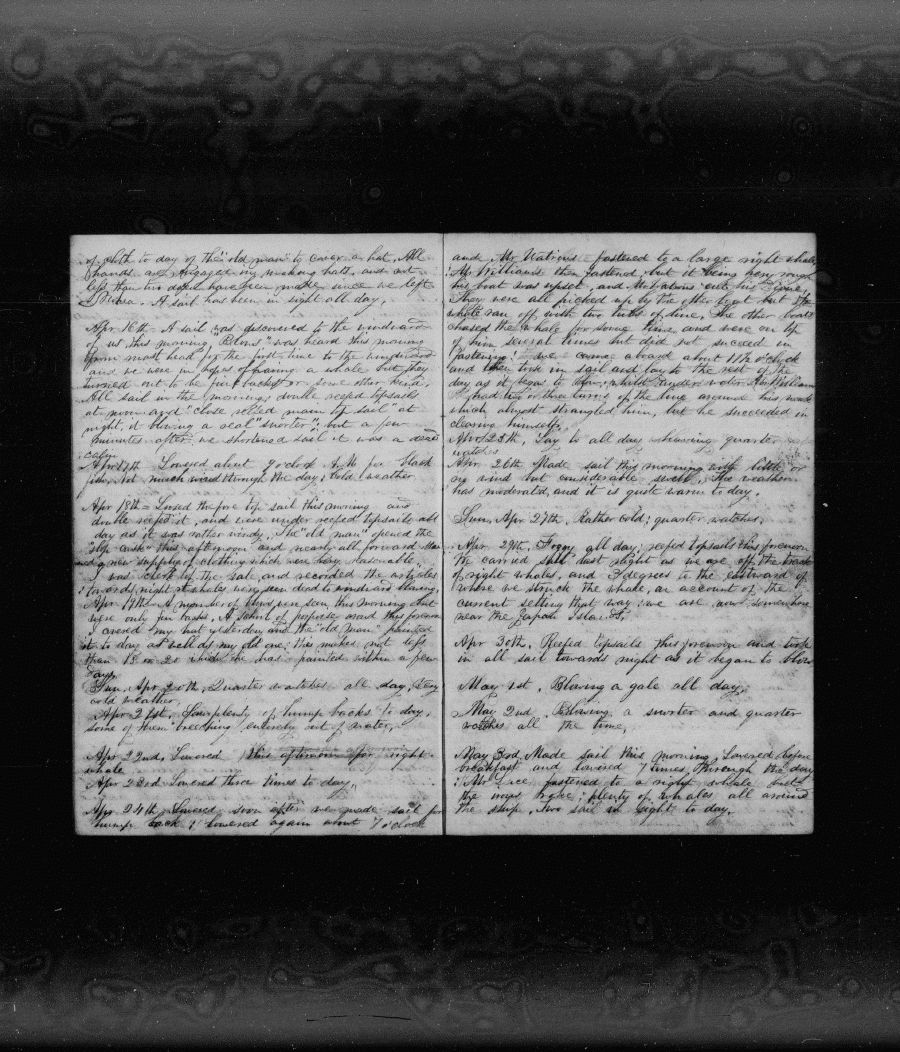 of cloth to day of the "old man" to cover a hat. All
hands are engaged in making hats, and not
less than two dozen have been made since we left
. A sail has been in sight all day.
Apr 16th - A sail was discovered to the windward
of us this morning. "Blows" was heard this morning
from mast head for the first time to the windward
and we were in hopes of a whale but they
turned out to be fin backs or some other kind.
All sail in the morning; double reefed topsails
at noon and "close reefed main top sail" at
night, it blowing a real "snorter"; but a few
minutes after we shortened sail it was a dead
calm
Apr 17th Lowered about 9 o'clock A.M. for black
fish. Not much wind through the day; cold weather
Apr 18th = Loosed the fore top sail this morning and
double reefed it, and were under reefed topsails all
day as it was rather windy. The "old man" opened the
"slop cask" this afternoon and nearly all forward
a new supply of clothing which were very reasonable.
I was clerk of the sale and recorded the articles
Towards night a whale was seen dead to windward
Apr 19th - A number of blows were seen this morning but
were only fin backs. A school of porpoise around this forenoon
I covered my hat yesterday and the "old man" painted
it to day as well as my old one: this makes not less
than 18 or 20 which he has painted within a few
days.
Sun. Apr 20th, Quarter watches all day, Very
cold weather,
Apr 21st. Saw plenty of hump backs to day,
some of them breeching entirely out of water,
Apr 22nd, Lowered this afternoon for right
whale
Apr 23rd Lowered three times to day,
Apr 24th Lowered soon after we made sail for
hump back; lowered again about 7 o'clock
and Mr. fastened to a large right whale
Mr. Williams then fastened, but it being very rough
his boat was upset, and Mr. cut his line,
They were all picked up by the other boat but the
whale ran off with two tubs of line. The other boats
chased the whale for some time, and were on top
of him several times but did not succeed in
fastening! we came aboard about 11½ o'clock
and then took in sail and lay to the rest of the
day as it began to blow, while under water Mr. Williams
had two or three turns of the line around his neck
which almost strangled him, but he succeeded in
clearing himself.
Apr 25th, Lay to all day having quarter
watches
Apr. 26th Made sail this morning with little or
no wind but considerable swell, The weather
has moderated, and it is quite warm to day.
Sun, Apr 27th. Rather cold; quarter watches,
Apr 29th, Foggy all day; reefed topsails this forenoon
We carried sail last night as we are off the track
of right whales, and 3 degrees to the eastward of
where we struck the whale, on account of the
current setting that way; we are now somewhere
near the Japan Islands.
Apr 30th, Reefed topsails this forenoon and took
in all sail towards night as it began to blow
May 1st, Blowing a gale all day,
May 2nd Blowing a snorter and quarter
watches all the time,
May 3rd, Made sail this morning, Lowered before
breakfast and lowered 7 times through the day
Mr. fastened to a right whale but
the irons broke; plenty of whales all around
the ship, Two sail in sight to day.